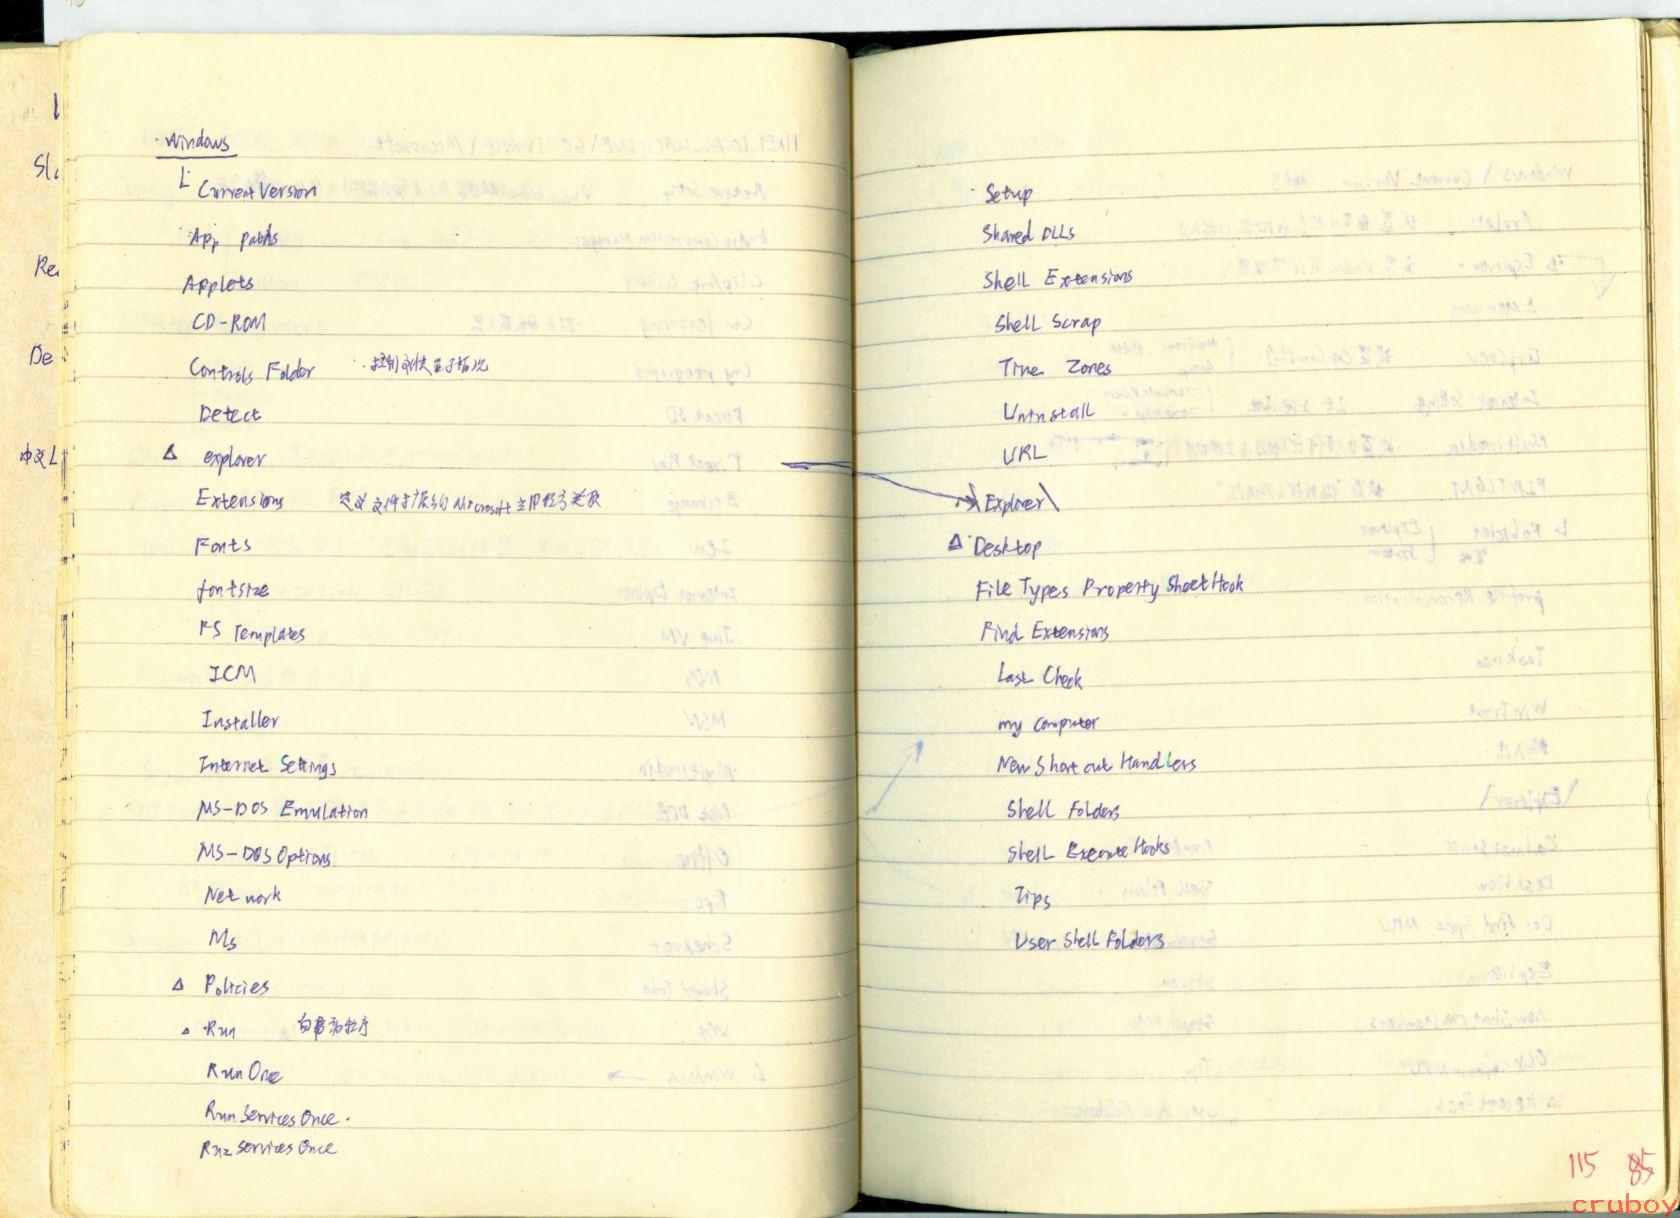 Windows
Current Version
App paths
Applets
CD-ROM
Controls Folder
Detect
△ explorer
Extensions 定义文件扩展名的Microsoft应用程序关联
Fonts
fontsize
FS Templates
ICM
Installer
Internet Settings
MS-DOS Emulation
MS-DOS Options
Network
Ms
△ Policies
△ Run 自启动程序
Run Once
Run Services Once.
Run Services Once
Setup
Shared DLLs
Shell Extensions
Shell Scrap
Time Zones
Uninstall
URL
\Explorer\
△ Desktop
File Types Property Sheet Hook
Find Extensions
Last Check
my computer
New Short cut Handlers
Shell Folders
Shell Execute Hooks
Tips
User Shell Folders
115 85
cruboy